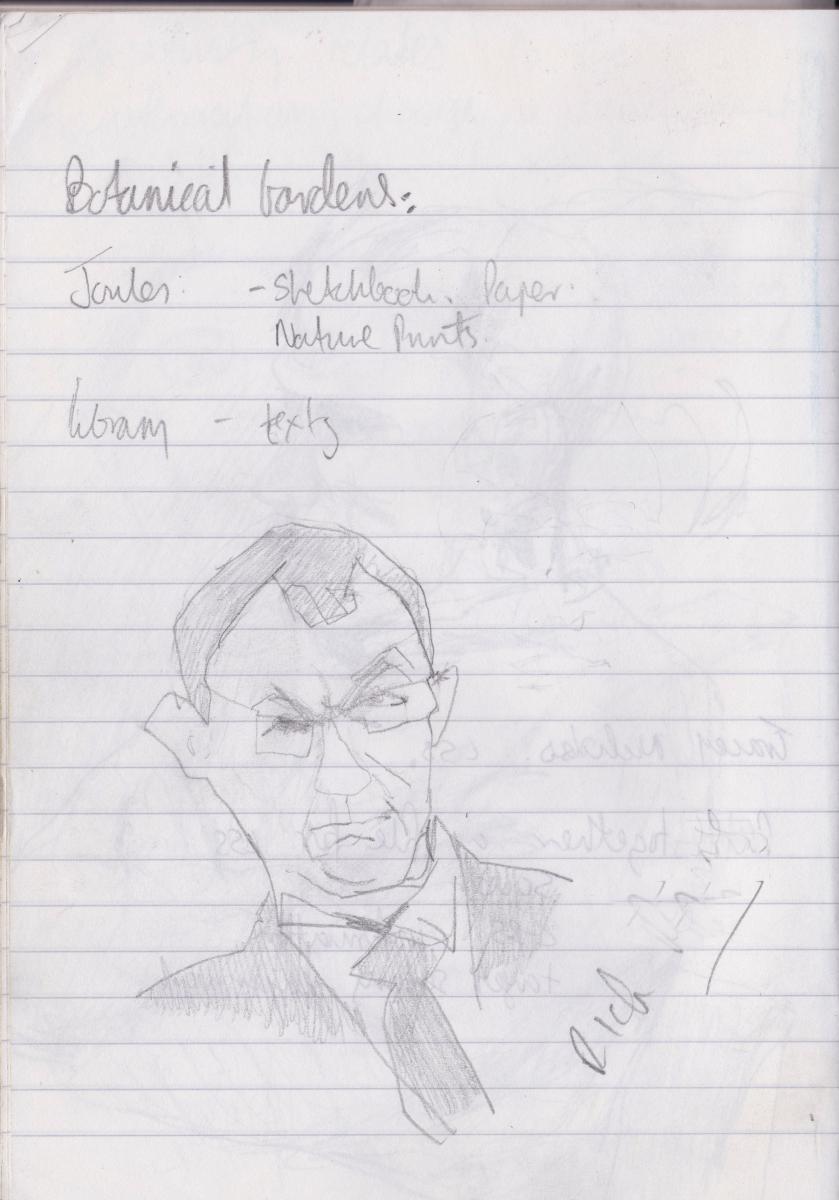 Botanical Gardens:
Joules. - Sketchbook. Paper.
Nature Prints.
library - texts
Rich